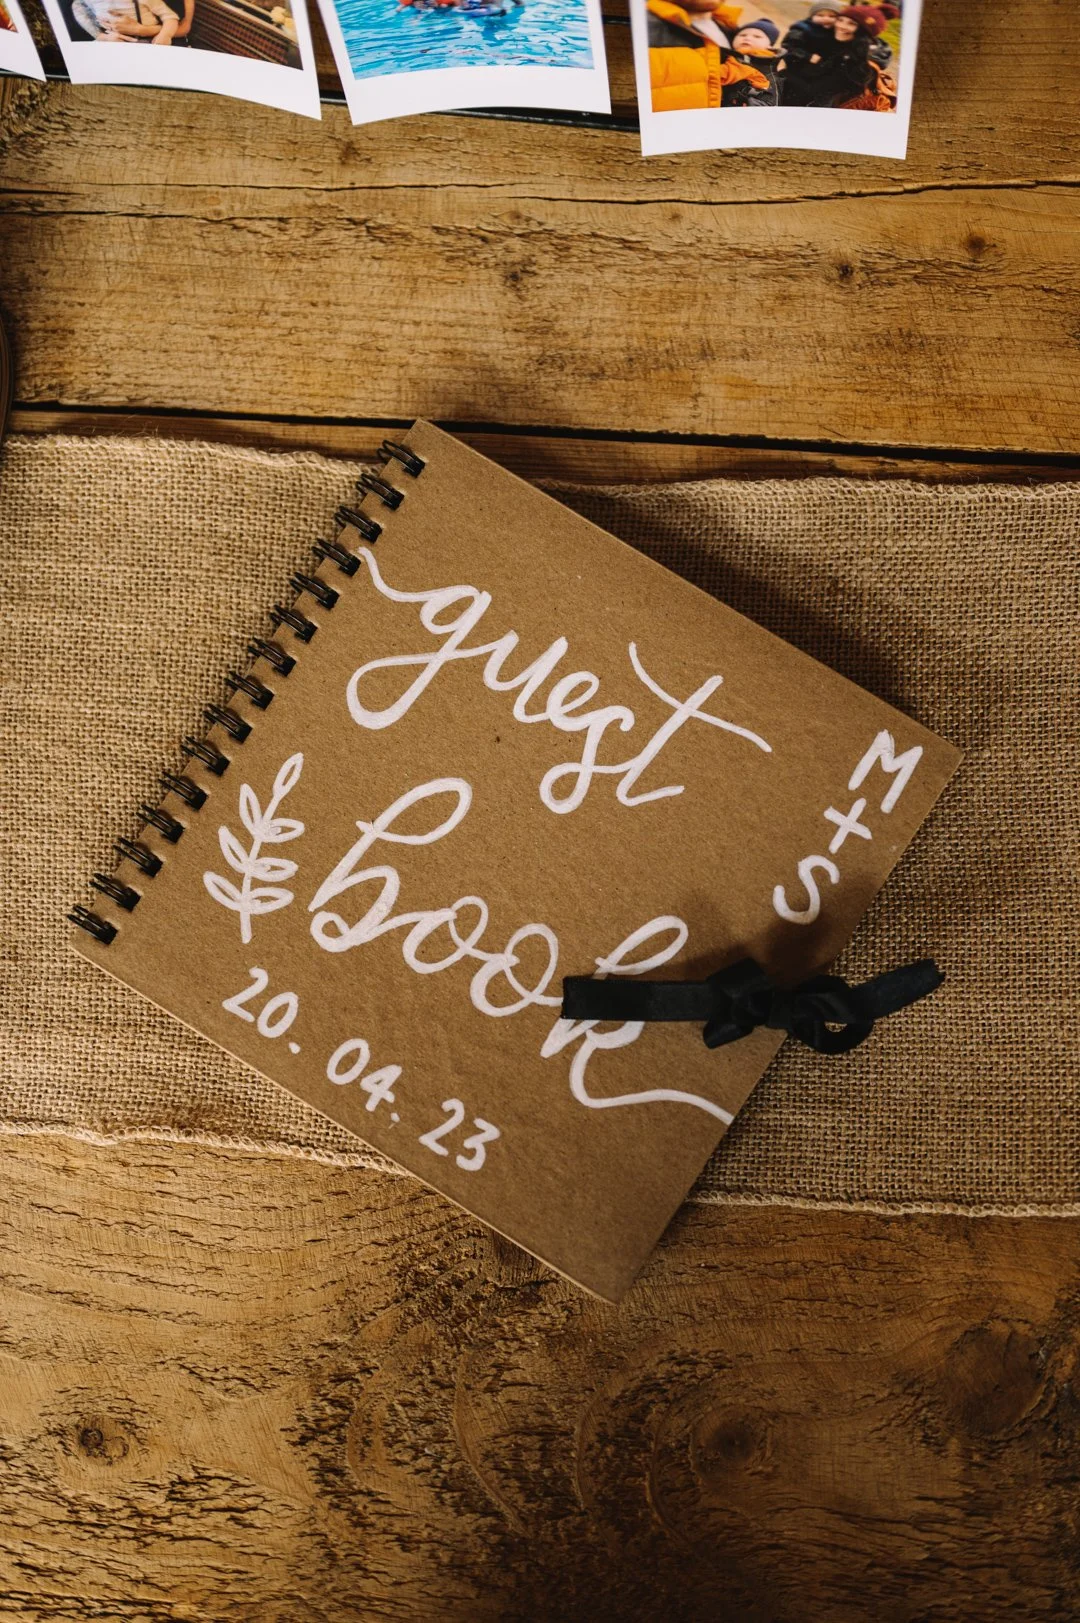 guest
book
M+S
20.04.23